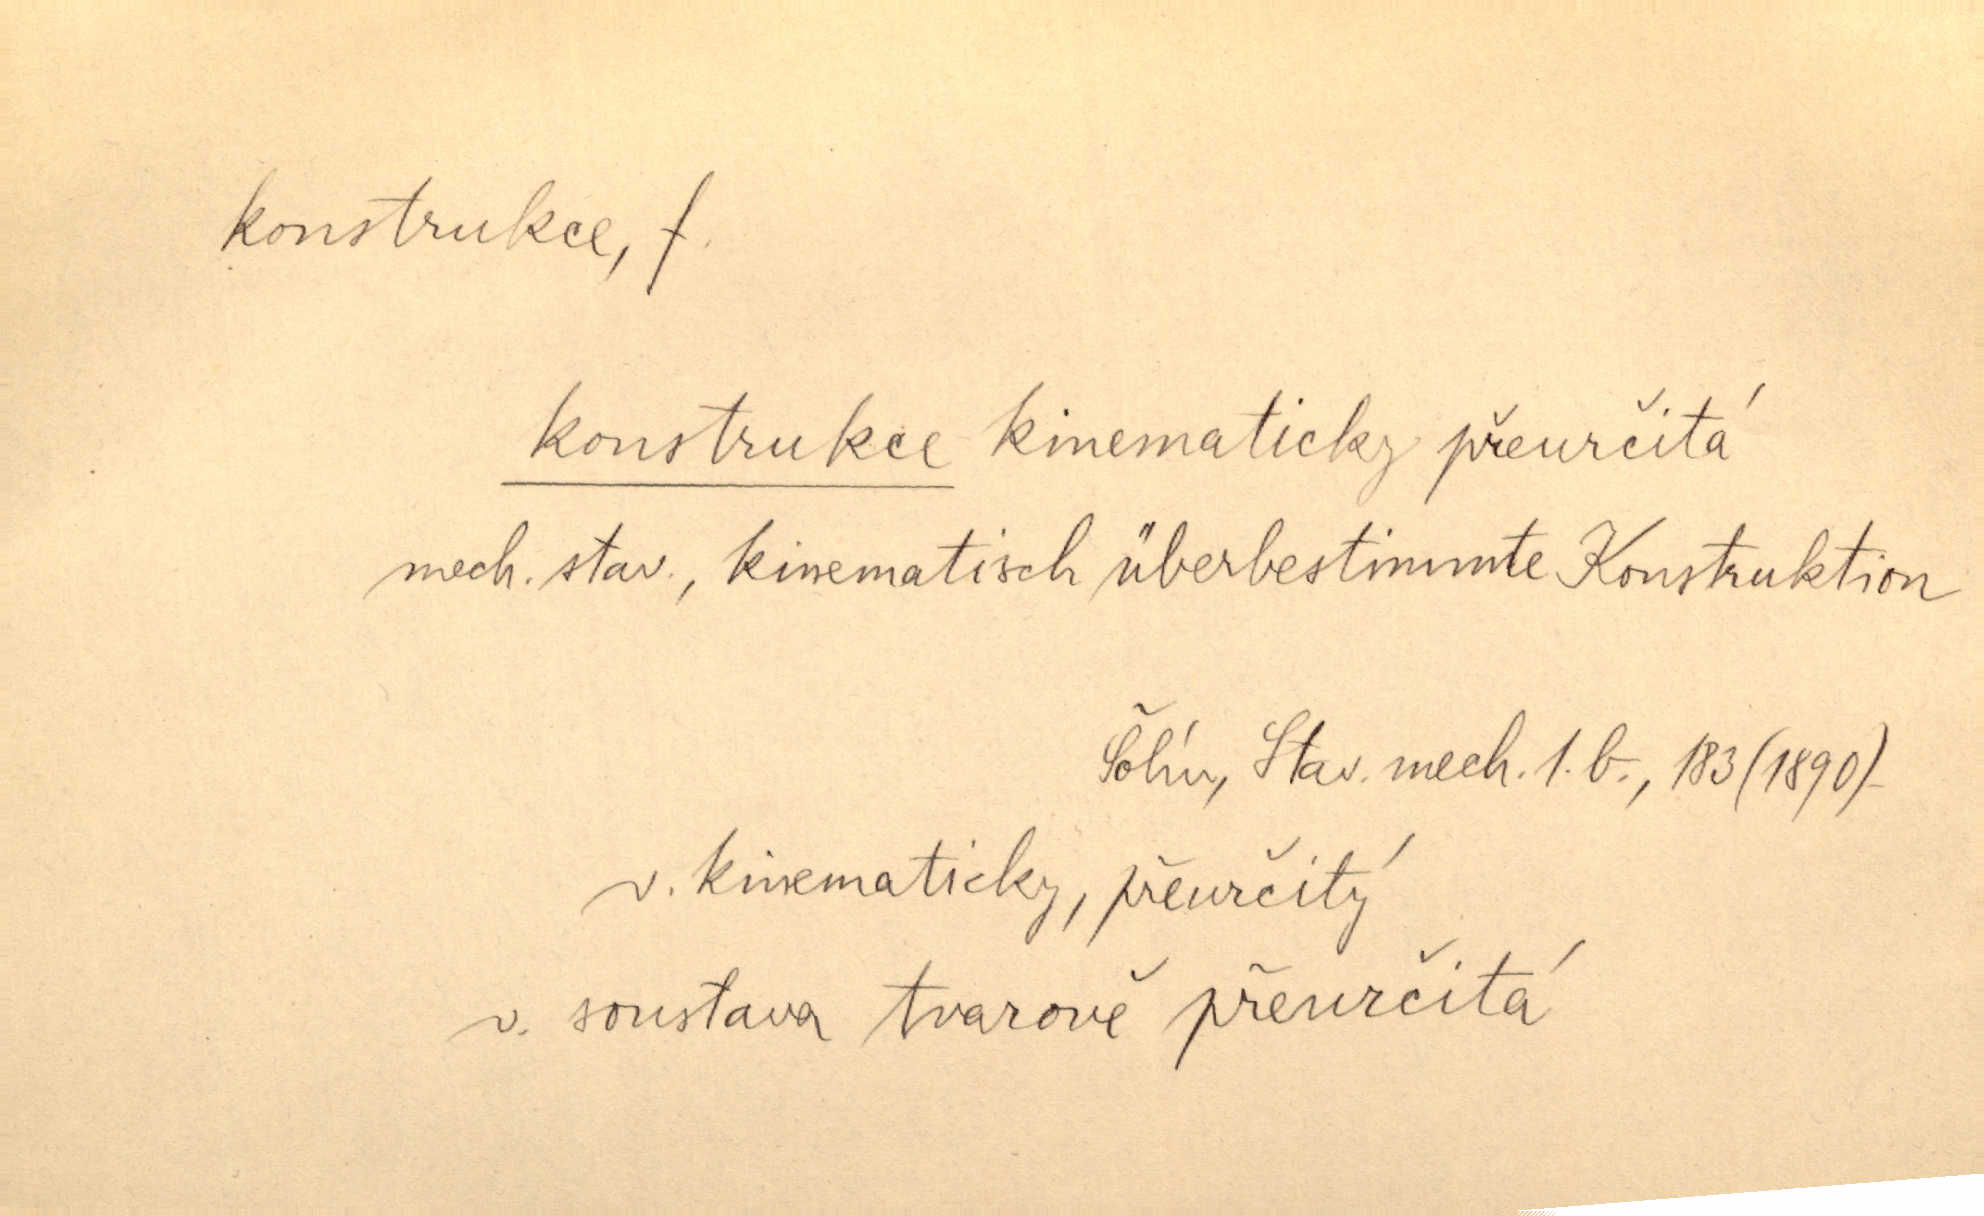 konstrukce, f.
konstrukce kinematicky přeurčitá
mech. stav., kinematisch überbestimmte Konstruktion
Šolín, Stav. mech. 1. b., 183 (1890)
v. kinematicky, přeurčitý
v. soustava tvarově přeurčitá